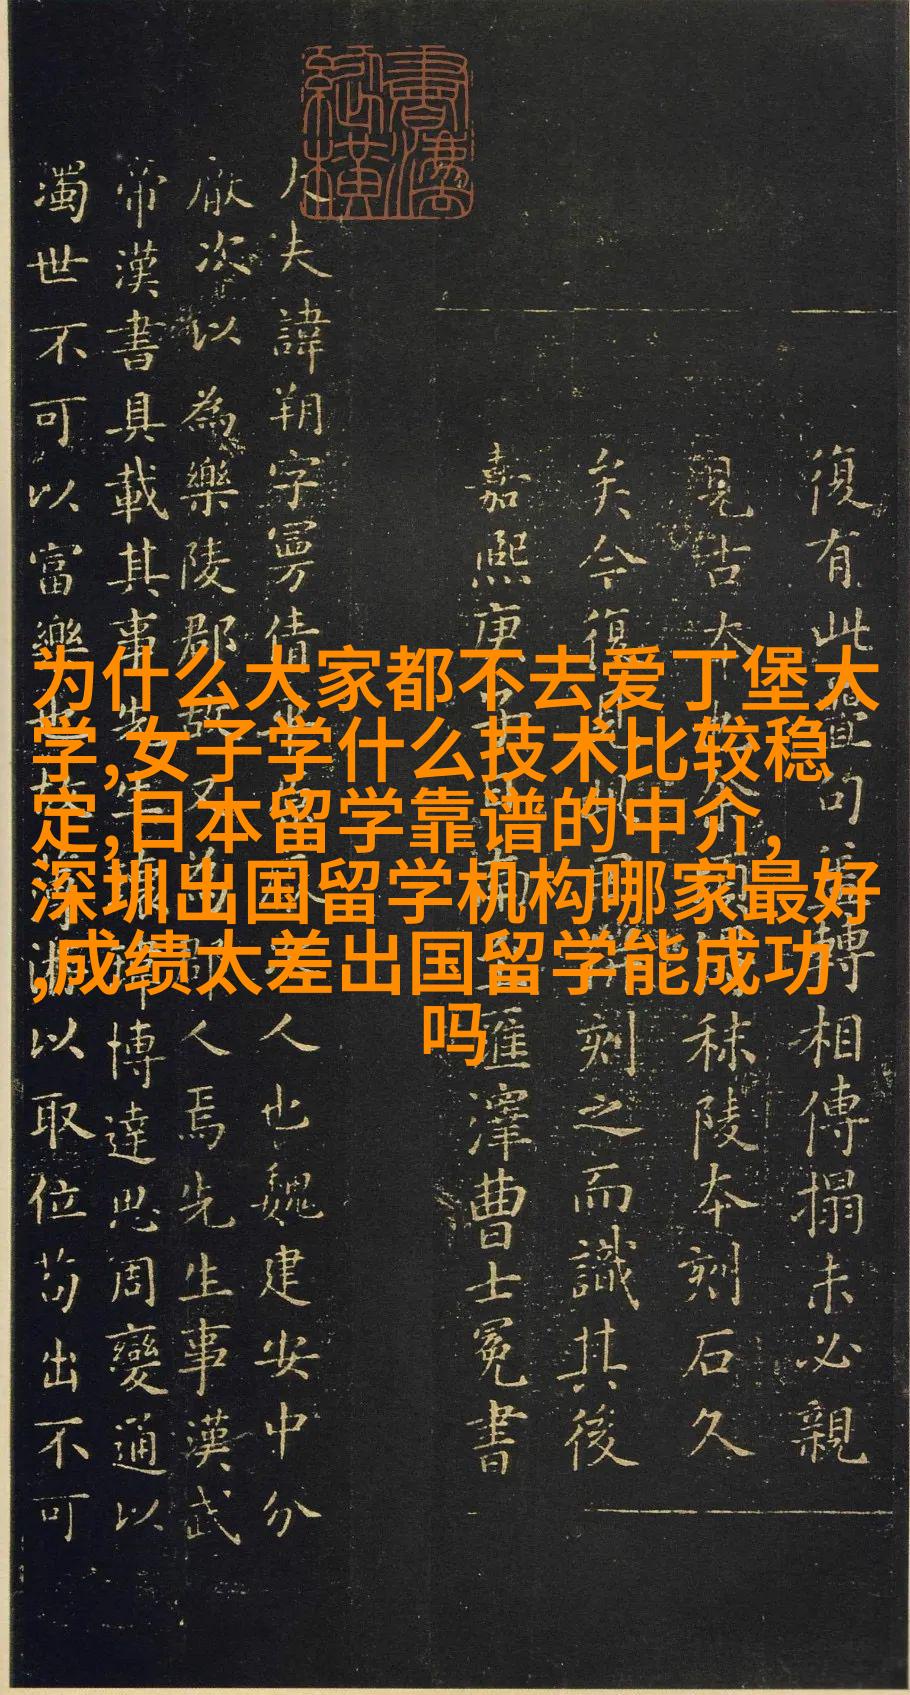 为什么大家都不去爱丁堡大
学,女子学什么技术比较稳
定,日本留学靠谱的中介,
深圳出国留学机构哪家最好
,成绩太差出国留学能成功
吗
復有此句轉相傳搨未必親
見古本秣陵本刻石久
矣今復刻之而識其後
嘉熙庚滙澤曹士冕書
大夫諱朔字曼倩人也魏建安中分
厭次以為樂陵郡人焉先生事漢武
帝漢書具載其事先生博達思周變通以
濁世不可以富樂以取位苟出不可